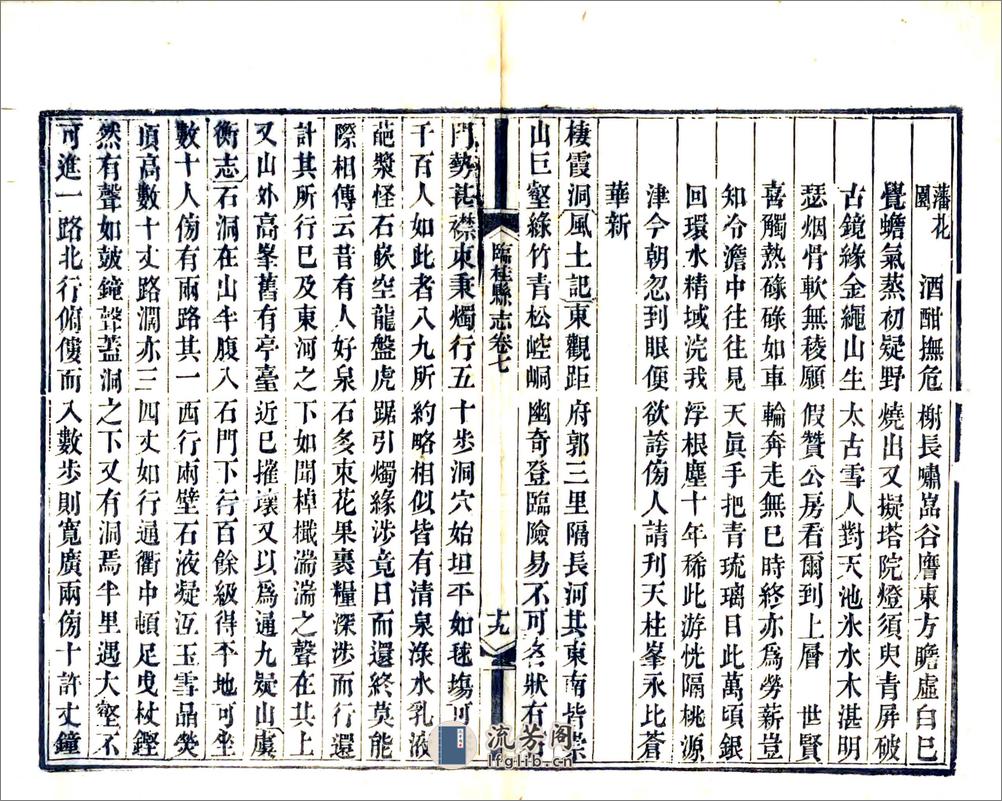 藩花園　酒酣撫危榭長嘯嵓谷譍東方瞻虛白巳
覺蟾氣蒸初疑野燒出又擬塔院燈須臾青屏破
古鏡緣金繩山生太古雪人對天池氷水木湛明
瑟烟骨軟無稜願假贊公房看爾到上層　世賢
喜觸熱碌碌如車輪奔走無巳時終亦爲勞薪豈
知冷澹中往往見天眞手把青琉璃目此萬頃銀
回環水精域浣我浮根塵十年稀此游恍隔桃源
津今朝忽到眼便欲誇傍人請刊天柱峯永比蒼
華新
棲霞洞風土記東觀距府郭三里隔長河其東南皆崇
山巨壑綠竹青松崆峒幽奇登臨險易不可名狀有
臨桂縣志卷七
十九
門勢礼襟束秉燭行五十步洞穴始坦平如毬塲可
千百人如此者八九所約略相似皆有清泉淥水乳液
葩漿怪石嵌空龍盤虎踞引燭緣涉竟日而還終莫能
際相傳云昔有人好泉石多束花果裹糧深涉而行還
計其所行巳及東河之下如聞棹檝湍湍之聲在其上
又山外高峯舊有亭臺近巳摧壞又以爲通九疑山虞
衡志石洞在山半腹入石門下行百餘級得平地可坐
數十人傍有兩路其一西行兩壁石液凝沍玉雪晶熒
頂高數十丈路濶亦三四丈如行通衢中頓足曳杖鏗
然有聲如皷鐘聲蓋洞之下又有洞焉半里遇大壑不
可進一路北行俯僂而入數步則寬廣兩傍十許丈鐘
流芳阁
lfglib.cn